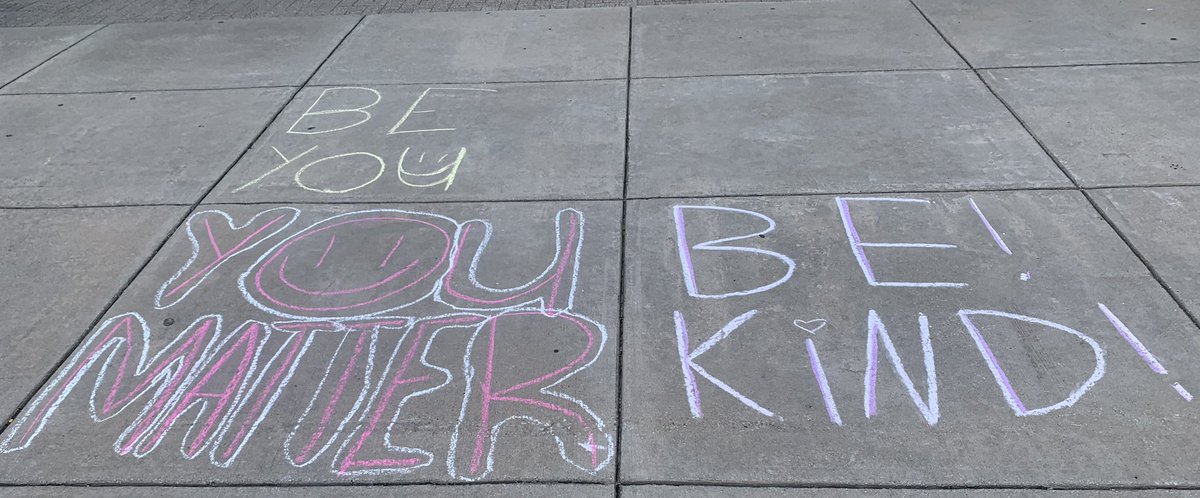 BE
YOU
YOU
MATTER
BE!
KiND!